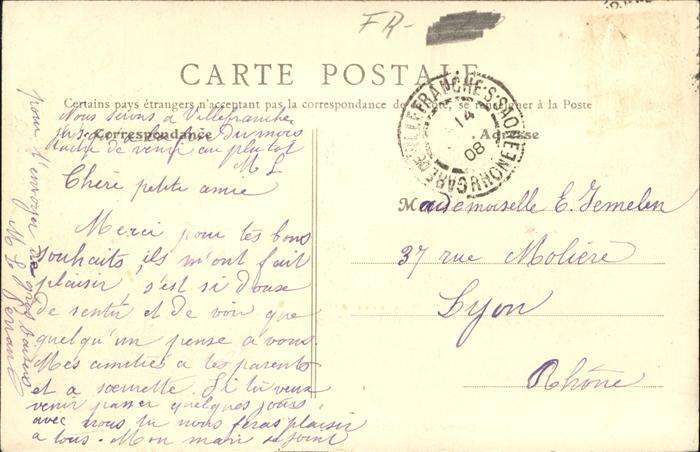 FR-
CARTE POSTALE
Certains pays étrangers n'acceptent pas la correspondance de se renseigner à la Poste
Correspondance
Adresse
GARE DE VILLEFRANCHE-S-SAONE (RHONE)
14
08
Nous serons a Villefranche
du mois
de venir au plutot
M L
Chère petite amie
Merci pour tes bons
souhaits, ils m'ont fait
plaisir, s'est si doux
de sentir et de voir que
quelqu'un pense a vous.
Mes amitiés a tes parents
et a sœurette. Si tu veux
venir passer quelques jours
avec nous tu nous feras plaisir
a tous. Mon mari se joint
pour t'envoyer de
M L
Mademoiselle E. Jemelen
37 rue Molière
Lyon
Rhône